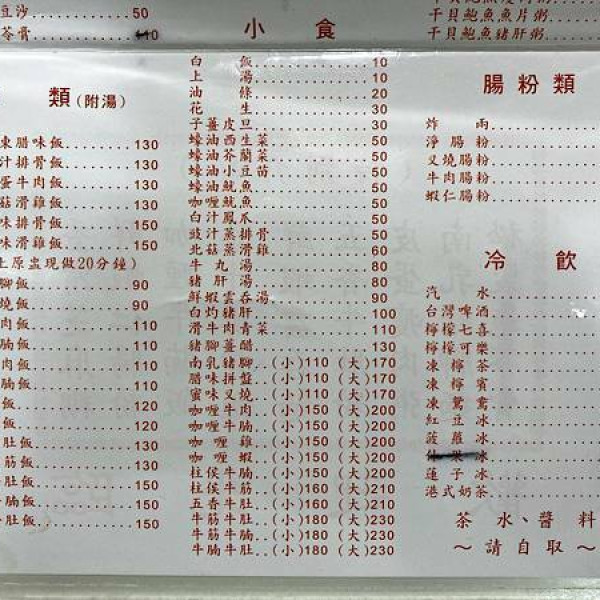 豆沙......50
苓膏......40
干貝鮑魚魚片粥
干貝鮑魚豬肝粥
類(附湯)
東腊味飯......130
汁排骨飯......130
蛋牛肉飯......130
菇滑雞飯......130
味排骨飯......150
味滑雞飯......150
上原盅現做20分鐘)
腳飯......90
燒飯......90
肉飯......110
腩飯......110
肉飯......110
腩飯......110
飯......120
飯......120
肚飯......130
筋飯......150
肚飯......150
腩飯......150
肚飯......150
小食
白飯......10
上湯......10
油條......20
花生......30
子薑皮旦......30
蠔油西生菜......50
蠔油芥蘭菜......50
蠔油小豆苗......50
蠔油魷魚......50
咖喱魷魚......50
白汁鳳爪......50
豉汁蒸排骨......50
北菇蒸滑雞......60
牛丸湯......80
豬肝湯......80
鮮蝦雲吞湯......90
白灼豬肝......100
滑牛肉青菜......110
豬腳薑醋......130
南乳豬腳..(小)110(大)170
腊味拼盤..(小)110(大)170
蜜味叉燒..(小)110(大)170
咖喱牛肉..(小)150(大)200
咖喱牛腩..(小)150(大)200
咖喱雞..(小)150(大)200
咖喱蝦..(小)150(大)200
柱侯牛腩..(小)150(大)200
柱侯牛肚..(小)160(大)210
五香牛肚..(小)160(大)210
牛筋牛肚..(小)180(大)230
牛筋牛腩..(小)180(大)230
牛腩牛肚..(小)180(大)230
腸粉類
炸雨......
淨腸粉......
叉燒腸粉......
牛肉腸粉......
蝦仁腸粉......
冷飲
汽水......
台灣啤酒......
檸檬七喜......
檸檬可樂......
凍檸茶......
凍檸賓......
凍鴛鴦......
紅豆冰......
菠蘿冰......
果冰......
蓮子冰......
港式奶茶......
茶水、醬料
～請自取～